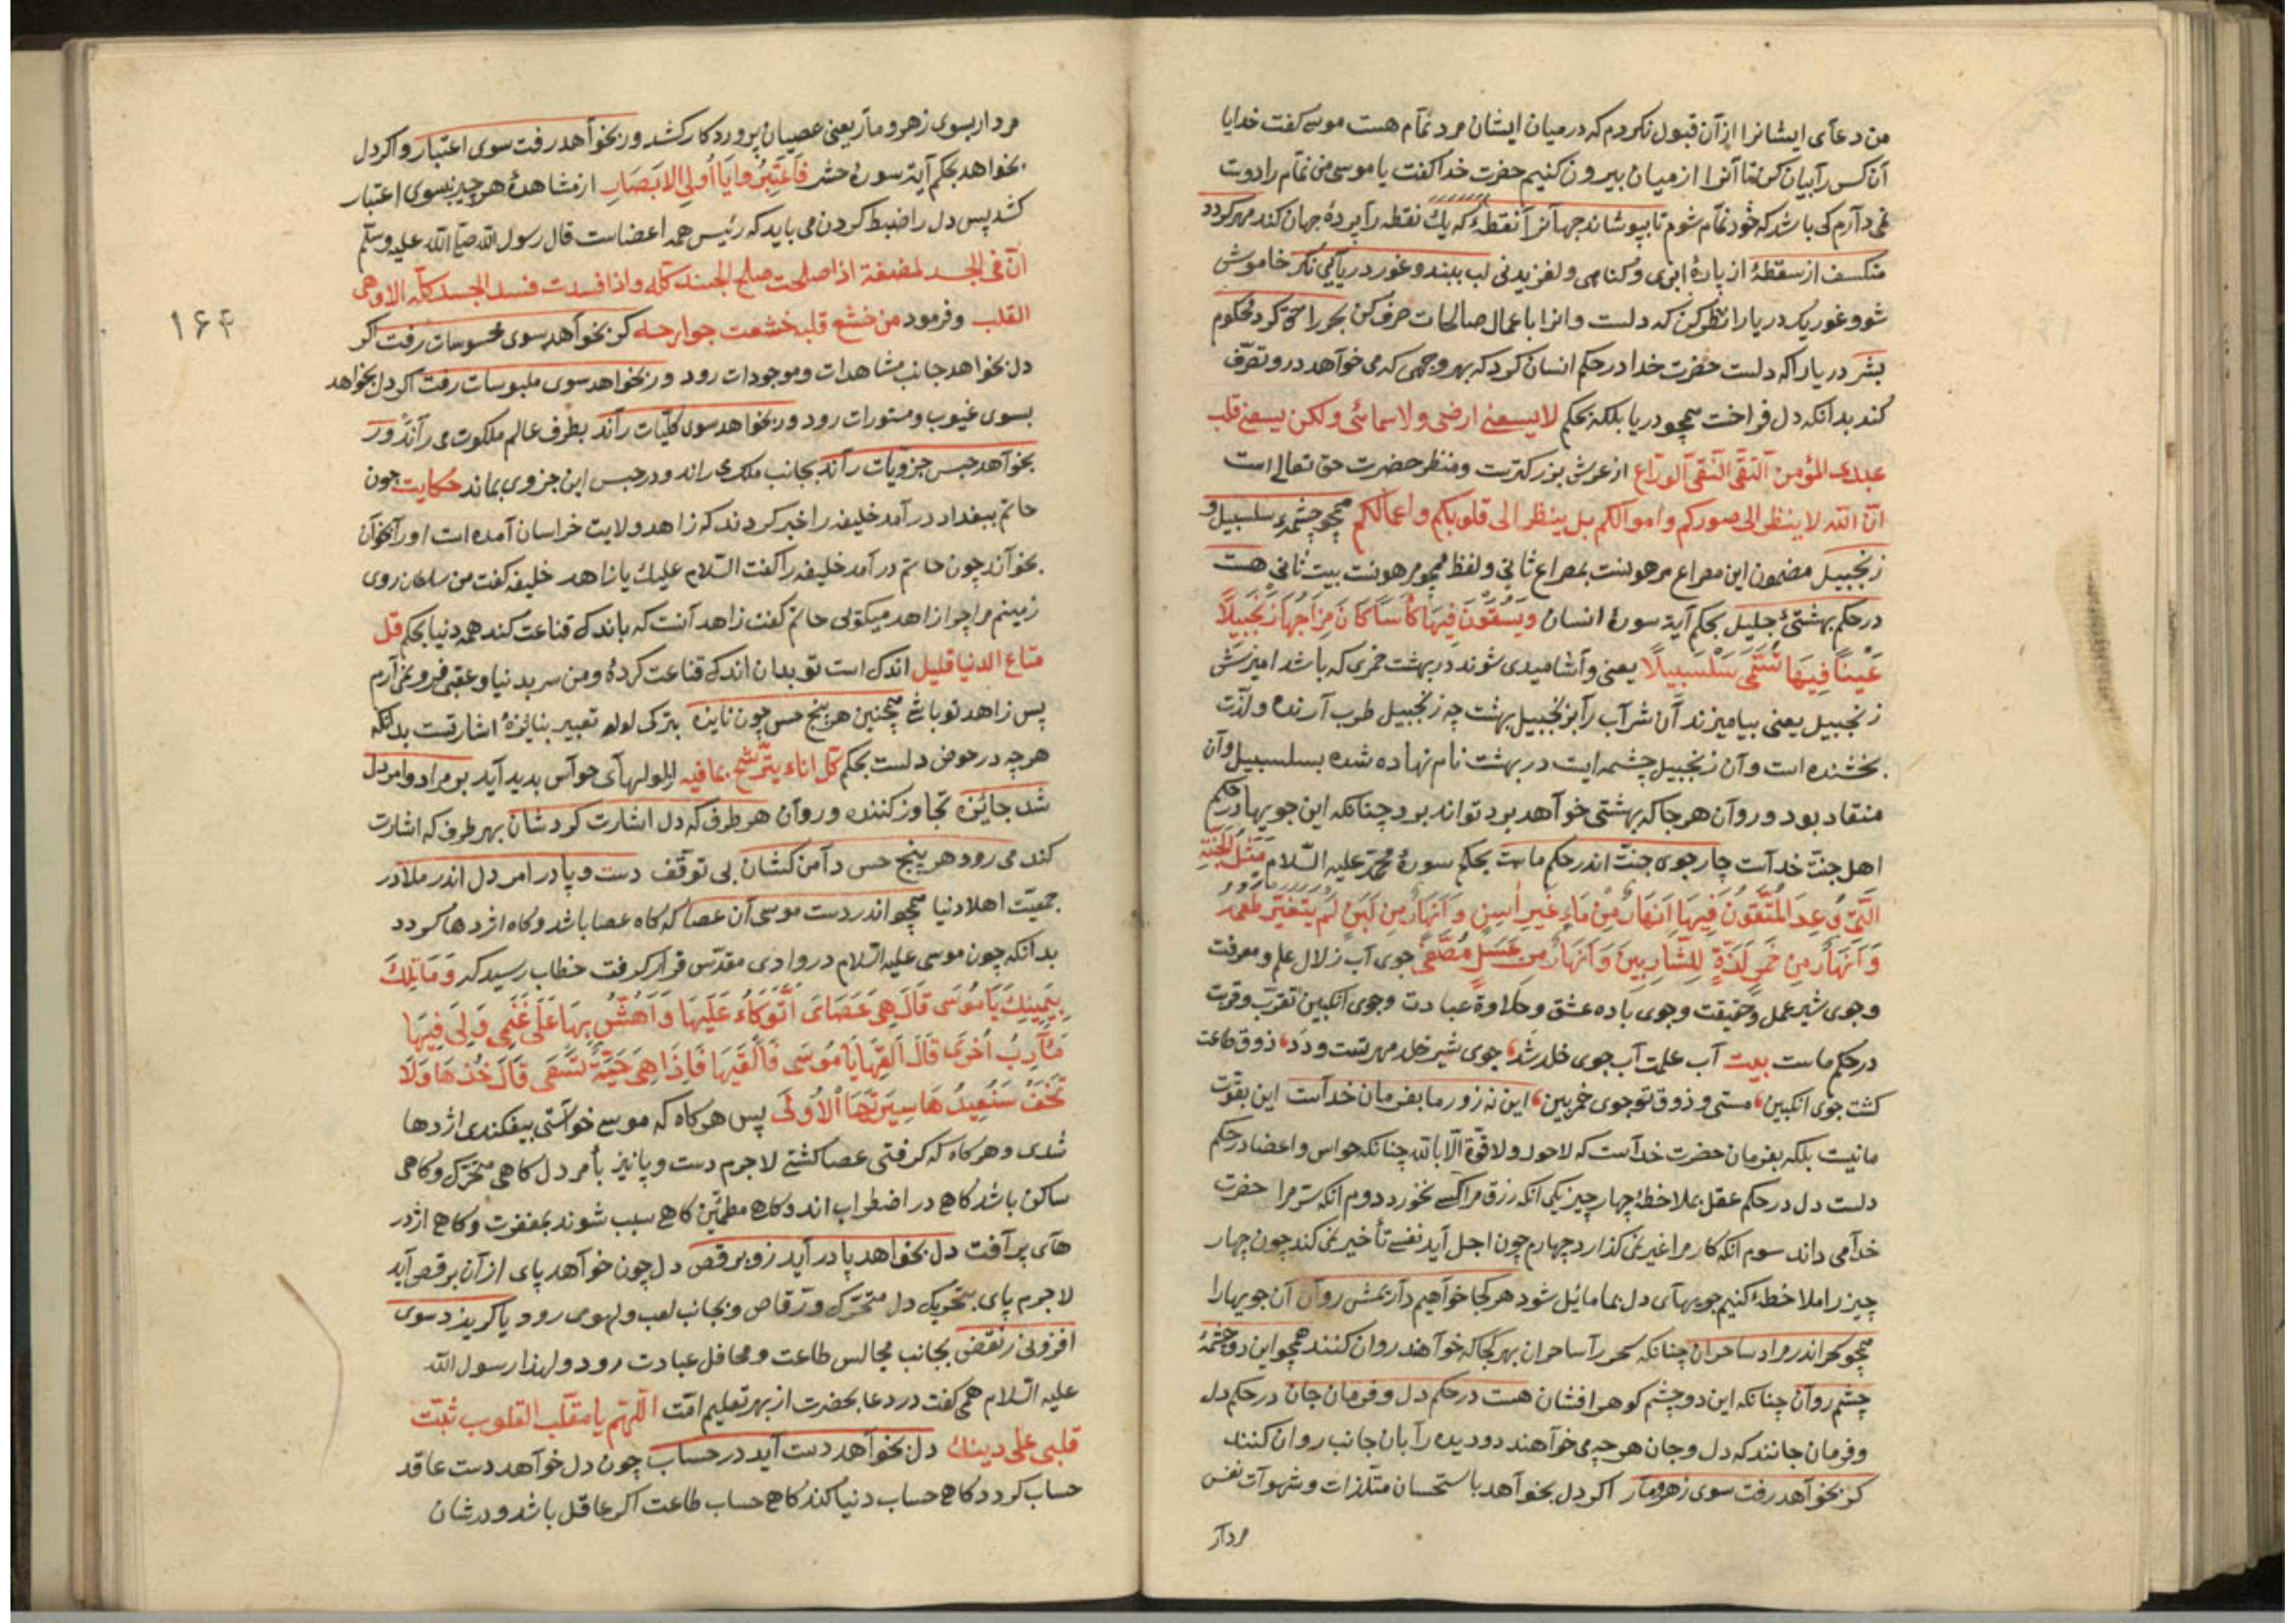 من دعآی ایشانرا ازآن قبول نکردم که درمیان ایشان مرد نمّآم هست موسی کفت خدایا
آن کس رآ بیان کن تا آنرا ازمیان بیرون کنیم حضرت خدا کفت یا موسی من نمّآم رادوت
نمی دآرم کی باشد که خود نمّآم شوم تا بپوشاند جهآنرآ نقطهٔ که یك نقطه رآ پردهٔ جهان کند مهر کردد
منکسف از سقطهٔ از پارهٔ ابری و کناهی و لغزیدنی لب ببند و غور دریآیی نکر خاموش
شو و غور یك دریا را نظر کن که دلست وانرا با عمال صالحات صرف کن بحر را حق کرد محکوم
بشر دریا را که دلست حضرت خدا درحکم انسان کرد که بهر وجهی که می خوآهد درو تصرّف
کند بدانکه دل فراخست همچو دریا بلکه بحکم لایسعنی ارضی ولاسمائی ولکن یسعنی قلب
عبدی المؤمن التقی النقی الورّاع ازعرش بزرکترست ومنظر حضرت حق تعالی است
انّ الله لا ینظر الی صورکم واموالکم بل ینظر الی قلوبکم واعمالکم همچو چشمهٔ سلسبیل و
زنجبیل مضمون این مصراع مرهونست بمصراع ثانی ولفظ همچو مرهونست ببیت ثانی هست
درحکم بهشتیٔ جلیل بحکم آیة سورهٔ انسان وَیُسْقَوْنَ فِیهَا کَأْسًا کَانَ مِزَاجُهَا زَنْجَبِیلاً
عَیْنًا فِیهَا تُسَمَّی سَلْسَبِیلاً یعنی وآشامیدی شوند در بهشت خمری که باشد امیزش
زنجبیل یعنی بیامیزند آن شرآب رآ بزنجبیل بهشت چه زنجبیل طرب آرنده ولذّت
بخشنده است وآن زنجبیل چشمه ایست در بهشت نام نهاده شده بسلسبیل وآن
منقاد بود وروآن هرجا که بهشتی خوآهد برد تواند برد چنانکه این جویها درحکم
اهل جنّت خدآست چارجوی جنّت اندر حکم ماست بحکم سورهٔ محمّد علیه السّلام مَثَلُ الْجَنَّةِ
الَّتِی وُعِدَ الْمُتَّقُونَ فِیهَا اَنْهَارٌ مِنْ مَاءٍ غَیْرِ اٰسِنٍ وَاَنْهَارٌ مِنْ لَبَنٍ لَمْ یَتَغَیَّرْ طَعْمُهُ
وَاَنْهَارٌ مِنْ خَمْرٍ لَذَّةٍ لِلشَّارِبِینَ وَاَنْهَارٌ مِنْ عَسَلٍ مُصَفًّی جوی آب زلال علم ومعرفت
وجوی شیر عمل وحقیقت وجوی باده عشق وحلاوة عبادت وجوی انکبین تقرّب وقربت
درحکم ماست بیت آب علمت آب جوی خلد شد، جوی شیر خلد مهر تست و ودّ، ذوق طاعت
کشت جوی انکبین، مستی و ذوق تو جوی خمر بین، این نه زور ما بفرمان خدآست این بقوّت
مانیست بلکه بفرمان حضرت خدآست که لاحول ولا قوّة الّا بالله چنانکه حواس واعضا درحکم
دلست دل درحکم عقل بملاحظهٔ چهار چیز یکی آنکه رزق مرا کسی نخورد دوم آنکه سرّ مرا حضرت
خدآمی داند سوم آنکه کار مرا غیر نمی کذارد چهارم چون اجل آید نفسی تأخیر نمی کند چون چهار
چیز را ملاحظه کنیم جویهآی دل بما مایل شود هرکجا خوآهیم دآریمش روآن آن جویها را
همچو سحر اندر مراد ساحران چنانکه سحر رآ ساحران بهرکجا که خوآهند روان کنند همچو این دو چشمهٔ
چشم روآن چنانکه این دو چشم کوهر افشان هست درحکم دل وفرمان جان درحکم دل
وفرمان جانند که دل وجان هرچه می خوآهند دو دیده رآ بان جانب روان کنند
کر بخوآهد رفت سوی زهرومار اکر دل بخوآهد باستحسان متلذذات وشهوآت نفس
مردآر
مردار بسوی زهر ومآر یعنی عصیان پروردکار کشد ور بخوآهد رفت سوی اعتبار واکر دل
بخواهد بحکم آیة سورهٔ حشر فَاعْتَبِرُوا یَا اُولِی الْاَبْصَارِ ازمشاهدهٔ هرچیز بسوی اعتبار
کشد پس دل را ضبط کردن می باید که رئیس همه اعضاست قال رسول الله صلّی الله علیه وسلّم
انّ فی الجسد لمضغة اذا صلحت صلح الجسد کلّه واذا فسدت فسد الجسد کلّه الا وهی
القلب وفرمود من خشع قلبه خشعت جوارحه کر بخوآهد سوی محسوسات رفت اکر
دل بخواهد جانب مشاهدات وموجودات رود ور بخواهد سوی ملبوسات رفت اکر دل بخواهد
بسوی غیوب ومستورات رود ور بخواهد سوی کلّیات رآند بطرف عالم ملکوت می رآند ور
بخوآهد حبس جزویات رآند بجانب ملك می راند ودرحبس این جزوی بماند حکایت چون
حاتم ببغداد درآمد خلیفه را خبر کردند که زاهد ولایت خراسان آمده است اورا بخوآن
بخوآند چون حاتم درآمد خلیفه رآ کفت السّلام علیك یا زاهد خلیفه کفت من سلطان روی
زمینم مرا چرا زاهد میکوئی حاتم کفت زاهد آنست که باندکی قناعت کند همه دنیا بحکم قل
متاع الدنیا قلیل اندکی است تو بدان اندکی قناعت کردهٔ ومن سر بدنیا وعقبی فرو نمی آرم
پس زاهد تو باشی همچنین هر پنج حس چون نایزه بترکی لوله تعبیر بنایزهٔ اشارتست بدانکه
هرچه درحوض دلست بحکم کلّ اناء یترشّح بما فیه ازلولهآی حوآس بدید آید بر مراد وامر دل
شد جایزه تجاوز کننده وروآن هر طرف که دل اشارت کردشان بهر طرف که اشارت
کند می رود هر پنج حس دآمن کشان بی توقّف دست وپا در امر دل اندر ملا در
جمعیّت اهل دنیا همچو اندر دست موسی آن عصا که کاه عصا باشد وکاه اژدها کردد
بدانکه چون موسی علیه السّلام در وادی مقدّس قرار کرفت خطاب رسید که وَمَا تِلْكَ
بِیَمِینِكَ یَا مُوسَی قَالَ هِیَ عَصَایَ اَتَوَکَّاءُ عَلَیْهَا وَاَهُشُّ بِهَا عَلَی غَنَمِی وَلِیَ فِیهَا
مَآرِبُ اُخْرَی قَالَ اَلْقِهَا یَا مُوسَی فَاَلْقَیهَا فَاِذَا هِیَ حَیَّةٌ تَسْعَی قَالَ خُذْهَا وَلَا
تَخَفْ سَنُعِیدُهَا سِیرَتَهَا الْاُولَی پس هرکاه که موسی خواستی بیفکندی اژدها
شدی وهرکاه که کرفتی عصا کشتی لاجرم دست وپا نیز بأمر دل کاهی متحرّك وکاهی
ساکن باشد کاهی در اضطراب اند وکاهی مطمئن کاهی سبب شوند بمغفرت وکاهی اژدر
هآی پر آفت دل بخواهد پا درآید زو برقص دل چون خوآهد پای ازآن برقص آید
لاجرم پای بتحریك دل متحرّك ورقّاص وبجانب لعب ولهو می رود یا کریزد سوی
افزونی زنقص بجانب مجالس طاعت ومحافل عبادت رود ولهذا رسول الله
علیه السّلام همی کفت در دعا بحضرت از بهر تعلیم امّت اللّهم یا مقلّب القلوب ثبّت
قلبی علی دینك دل بخوآهد دست آید در حساب چون دل خوآهد دست عاقد
حساب کردد کاهی حساب دنیا کند کاهی حساب طاعت اکر عاقل باشد ودرشان
۱۶۴